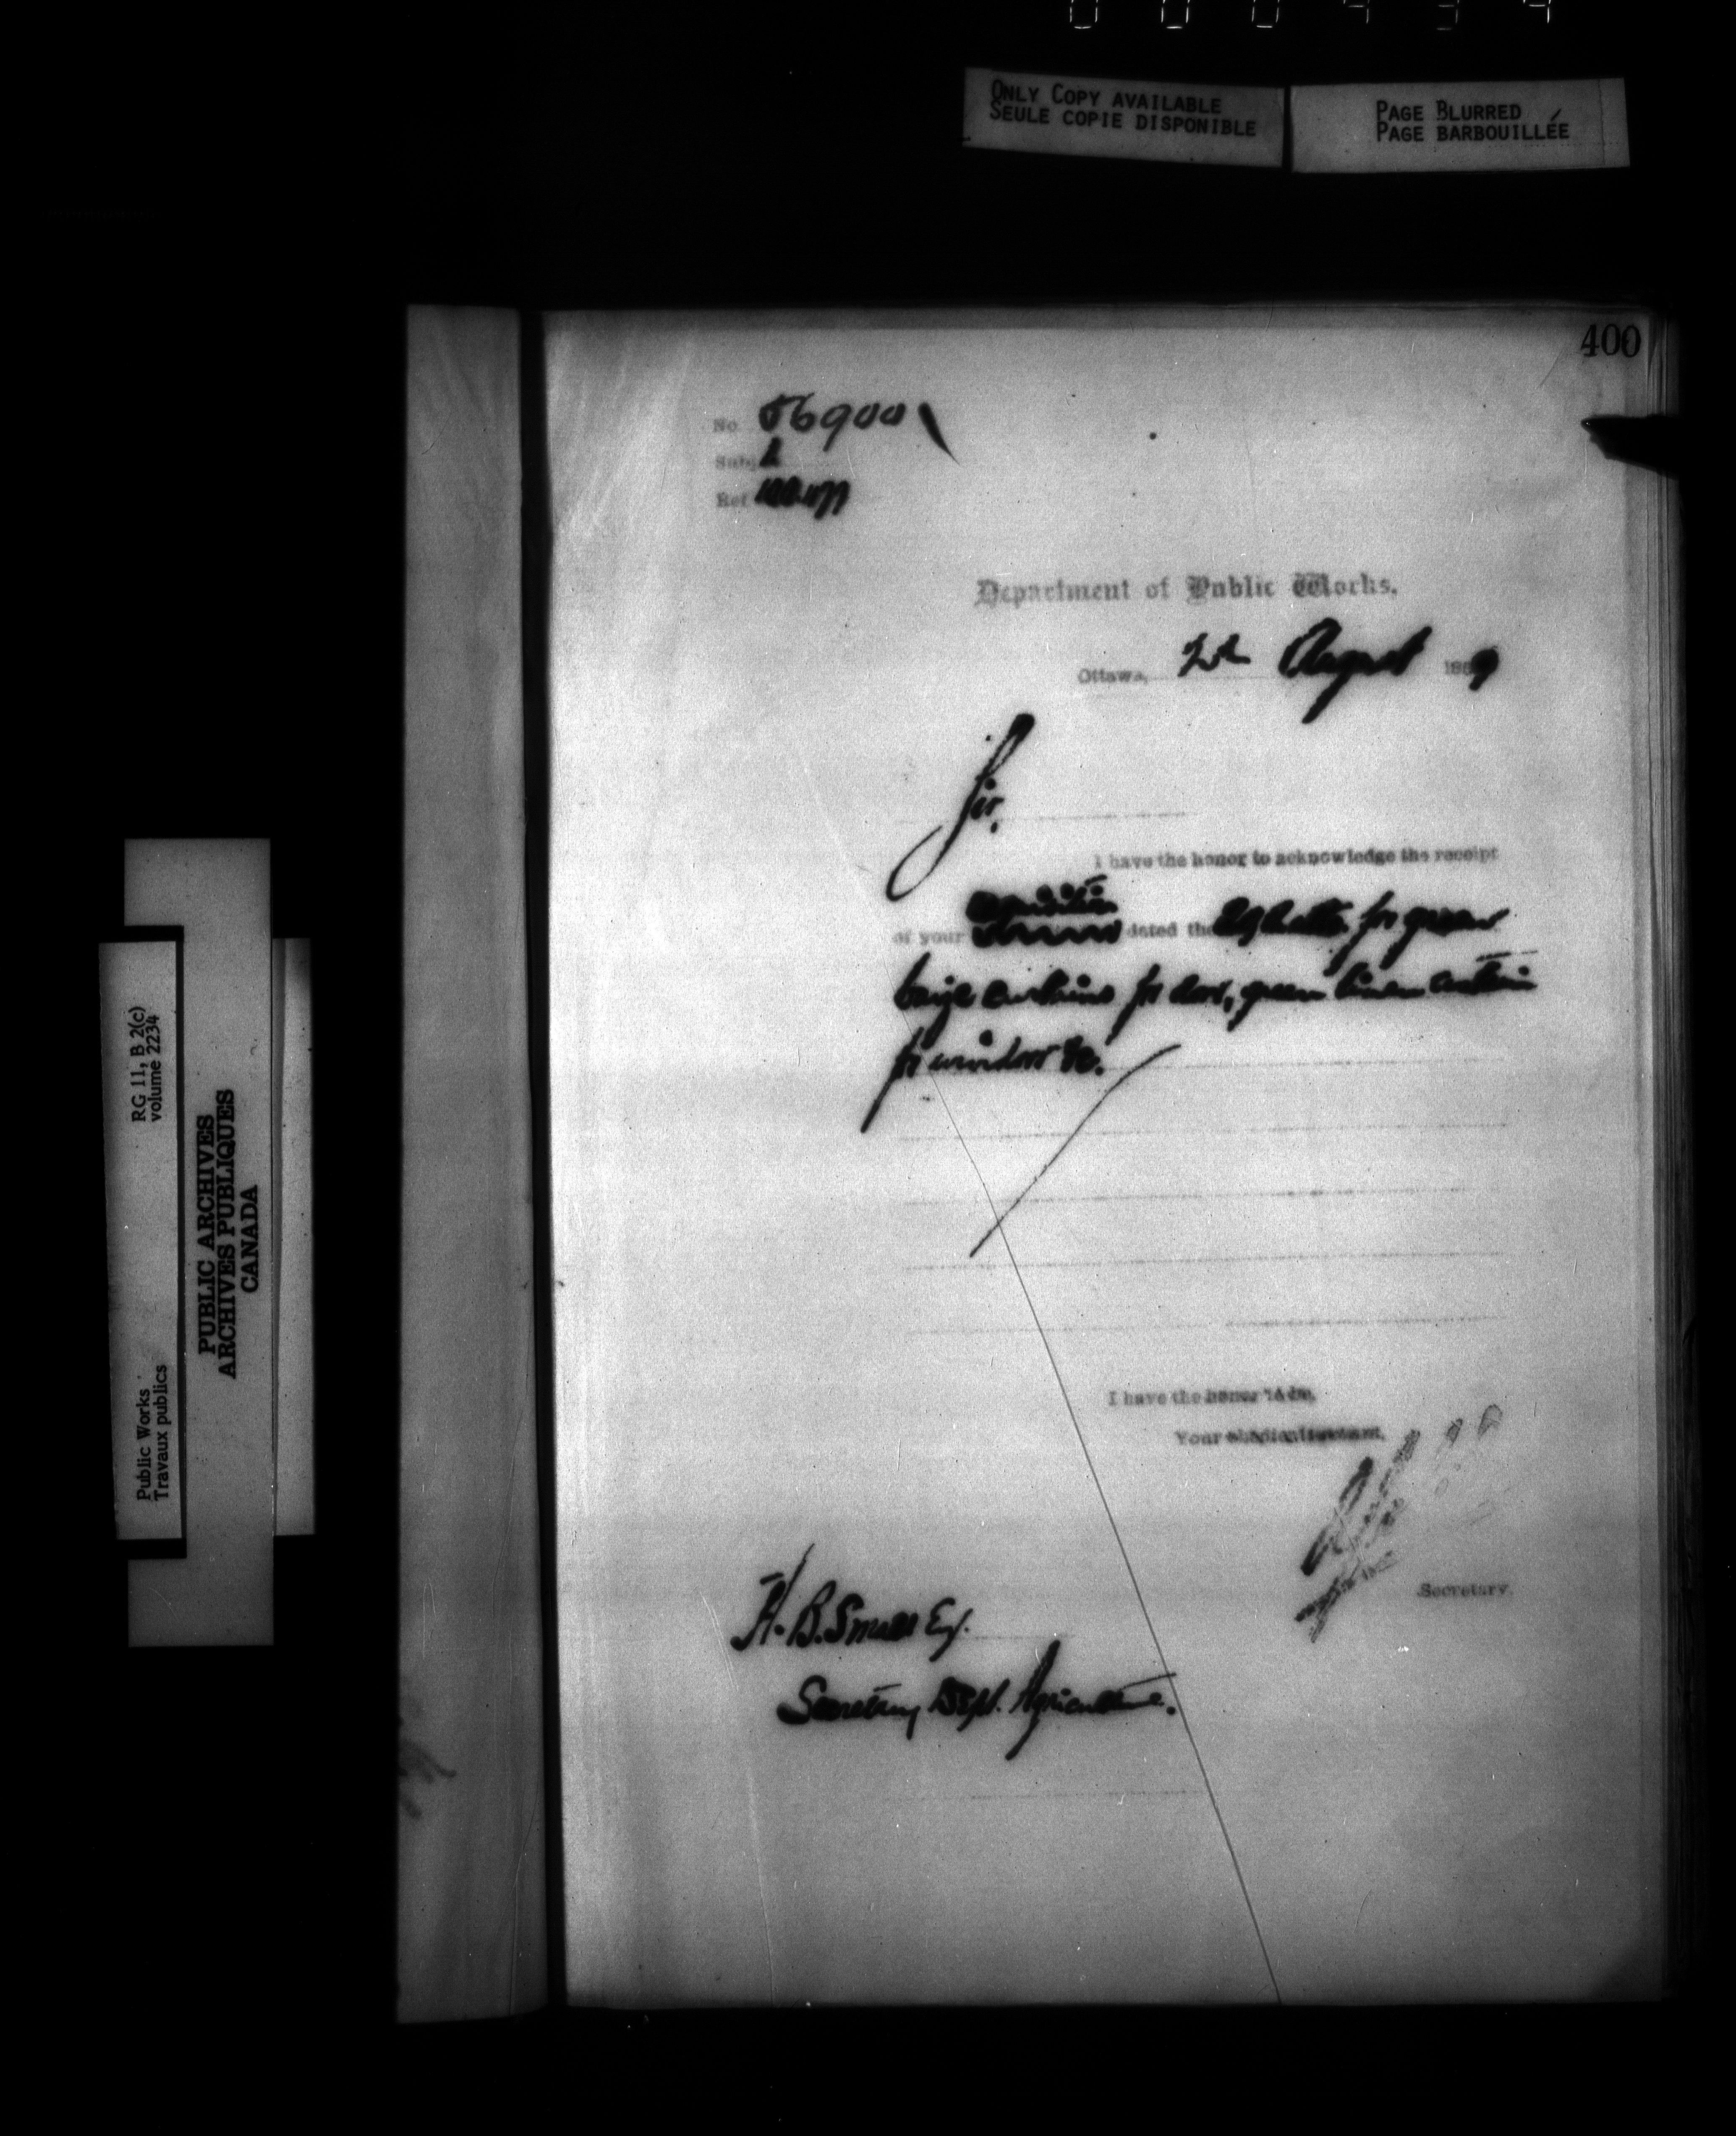 ONLY COPY AVAILABLE
SEULE COPIE DISPONIBLE
PAGE BLURRED
PAGE BARBOUILLÉE
400
No. 56900
Subj.
Ref.
Department of Public Works.
Ottawa, August 1889
Sir,
I have the honor to acknowledge the receipt
of your requisition dated the for green
baize curtains for door, green linen curtain
for window &c.
I have the honor to be,
Your obedient servant,
Secretary.
H. B. Small Esq.
Secretary Dept. Agriculture.
RG 11, B 2(c)
volume 2234
Public Works
Travaux publics
PUBLIC ARCHIVES
ARCHIVES PUBLIQUES
CANADA